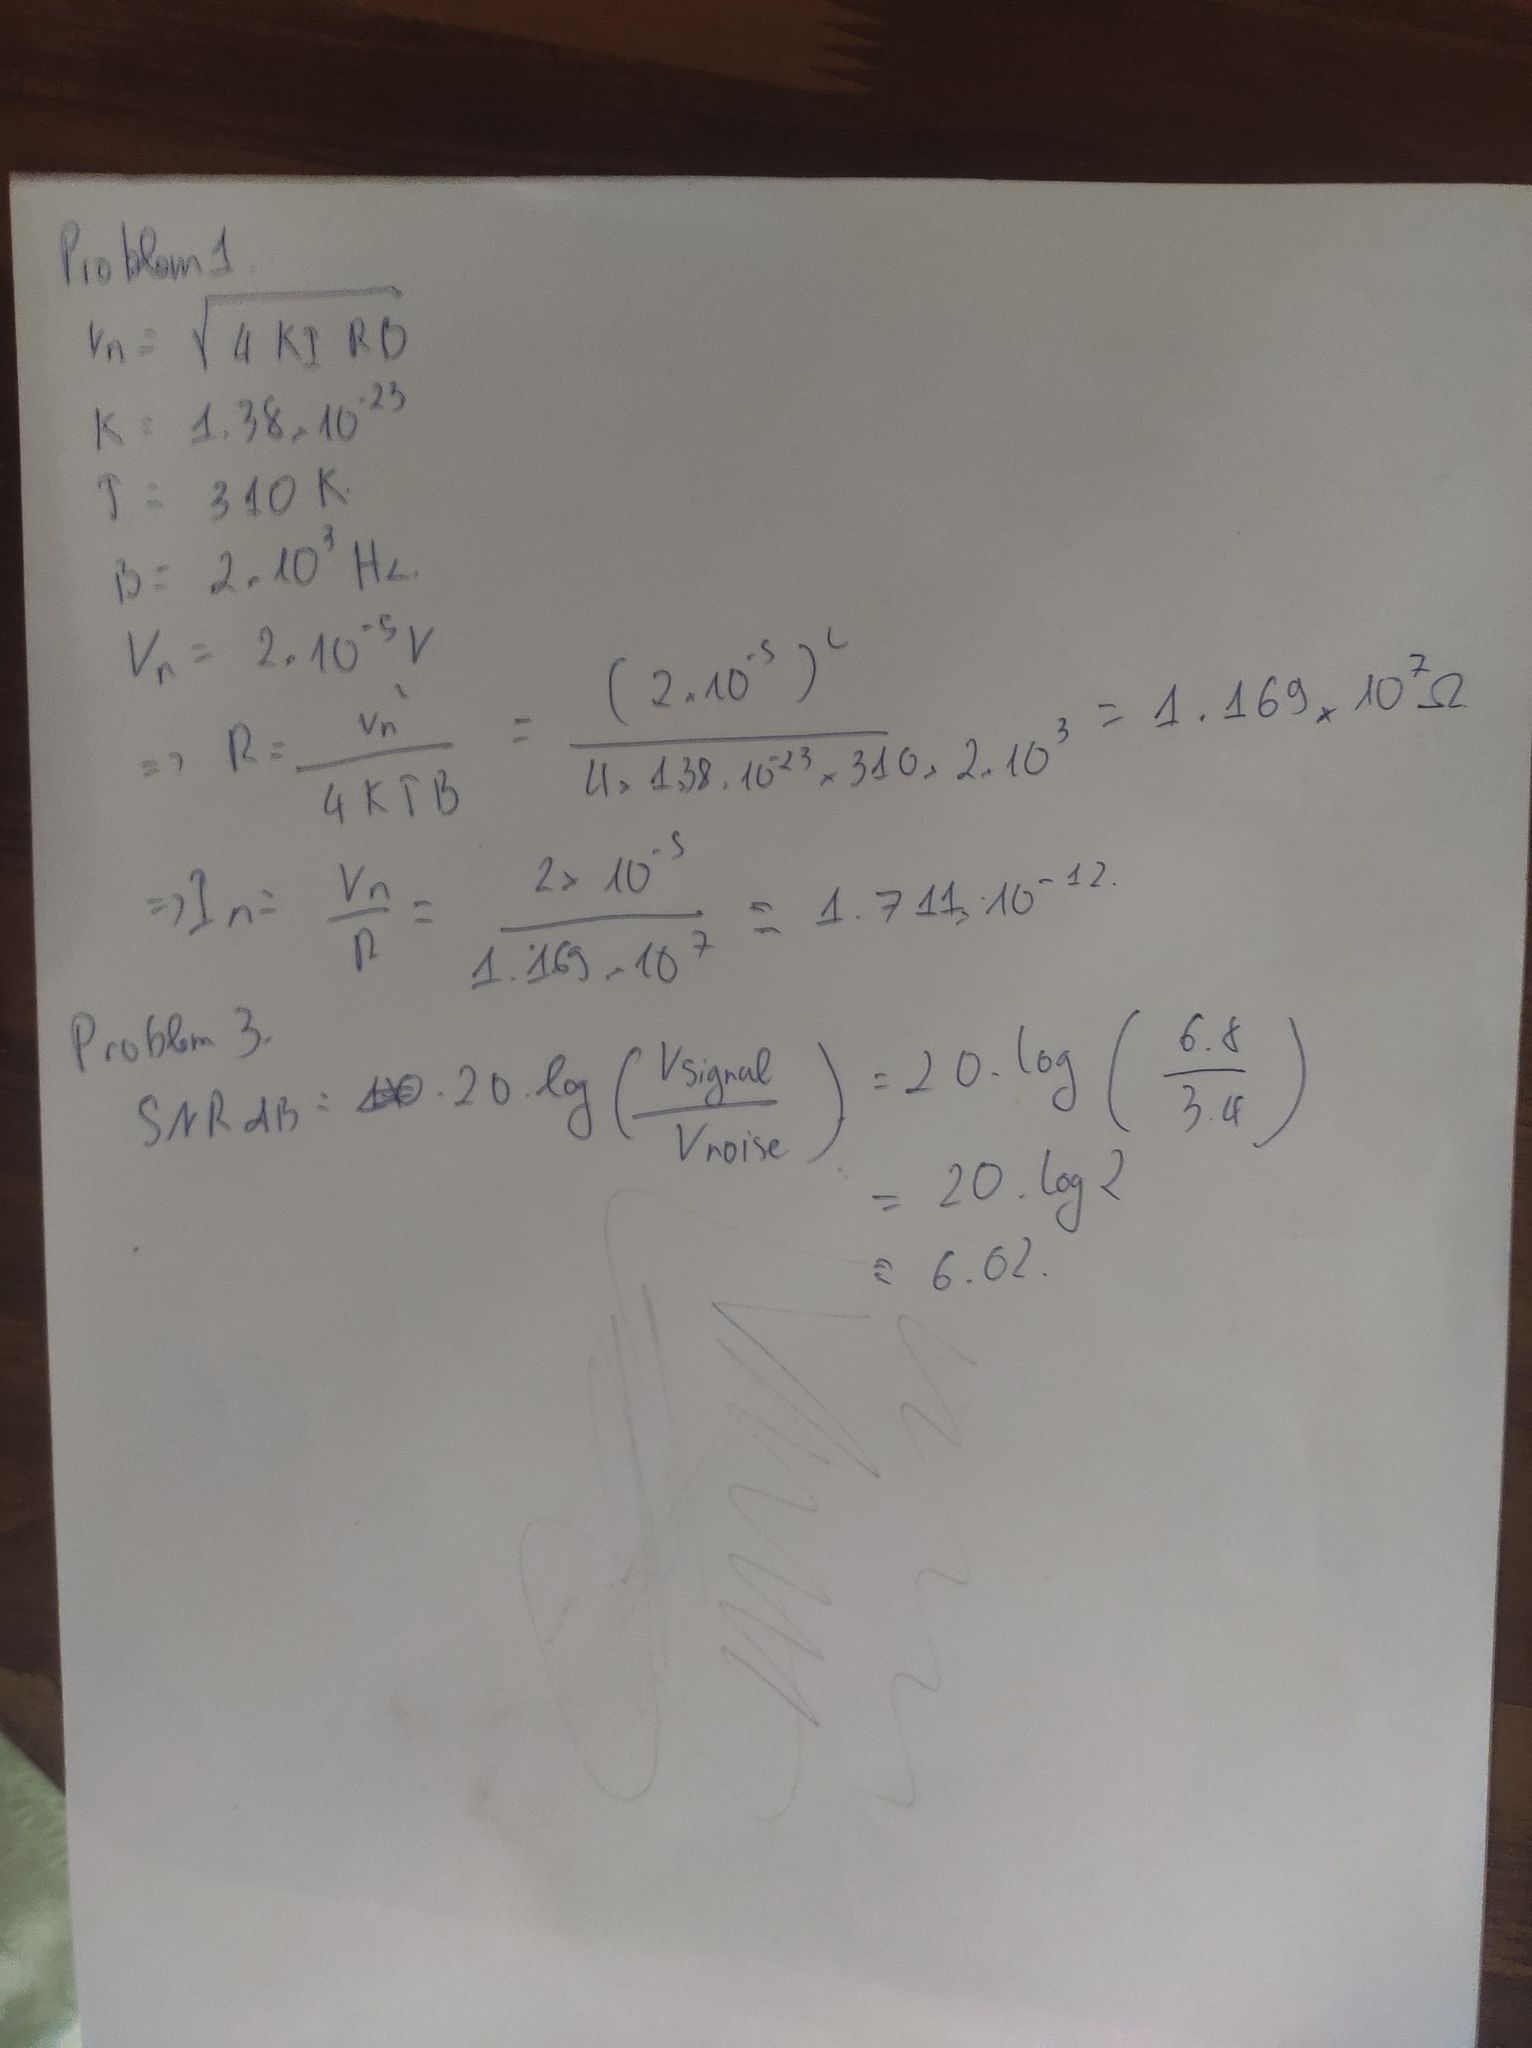 Problem 1.
Vn = √4 KT RB
K = 1.38 . 10^-23
T = 310 K.
B = 2.10^3 Hz.
Vn = 2.10^-5 V
=> R = Vn^2 / 4KTB = (2.10^-5)^2 / 4 x 1.38 . 10^-23 x 310 x 2.10^3 = 1.169 x 10^7 Ω
=> In = Vn / R = 2 x 10^-5 / 1.169 . 10^7 = 1.711 . 10^-12.
Problem 3.
SNR dB = . 20 . log (Vsignal / Vnoise) = 20 . log (6.8 / 3.4)
= 20 . log 2
= 6.02.